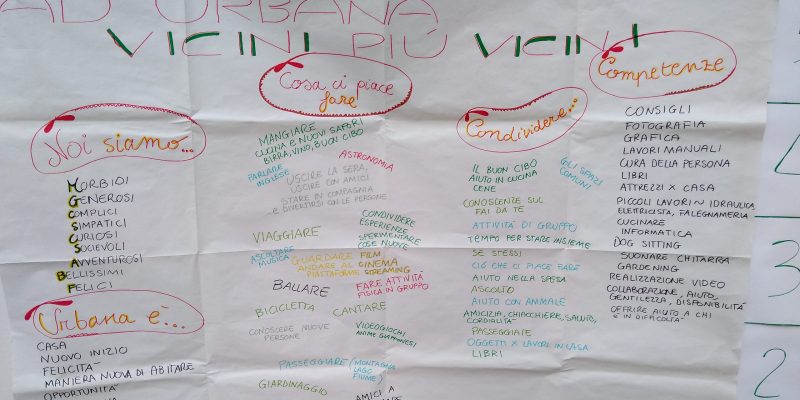 AD URBANA
VICINI PIÙ VICINI
Noi siamo...
MORBIDI
GENEROSI
COMPLICI
SIMPATICI
CURIOSI
SOCIEVOLI
AVVENTUROSI
BELLISSIMI
FELICI
Urbana è...
CASA
NUOVO INIZIO
FELICITÀ
MANIERA NUOVA DI ABITARE
OPPORTUNITÀ
Cosa ci piace
fare
MANGIARE
CUCINA E NUOVI SAPORI
BIRRA, VINO, BUON CIBO
PARLARE
INGLESE
ASTRONOMIA
USCIRE LA SERA,
USCIRE CON AMICI
STARE IN COMPAGNIA
...E DIVERTIRSI CON LE PERSONE
VIAGGIARE
CONDIVIDERE
ESPERIENZE
SPERIMENTARE
COSE NUOVE
ASCOLTARE
MUSICA
GUARDARE FILM
ANDARE AL CINEMA
PIATTAFORME STREAMING
BALLARE
FARE ATTIVITÀ
FISICA IN GRUPPO
BICICLETTA
CANTARE
CONOSCERE NUOVE
PERSONE
VIDEOGIOCHI,
ANIME GIAPPONESI
PASSEGGIARE (MONTAGNA
LAGO
FIUME)
GIARDINAGGIO
AMICI A
Condividere...
IL BUON CIBO
AIUTO IN CUCINA
CENE
GLI SPAZI
COMUNI
CONOSCENZE SUL
FAI DA TE
ATTIVITÀ DI GRUPPO
TEMPO PER STARE INSIEME
SE STESSI
CIÒ CHE CI PIACE FARE
AIUTO NELLA SPESA
ASCOLTO
AIUTO CON ANIMALE
AMICIZIA, CHIACCHIERE, SALUTO,
CORDIALITÀ
PASSEGGIATE
OGGETTI X LAVORI IN CASA
LIBRI
Competenze
CONSIGLI
FOTOGRAFIA
GRAFICA
LAVORI MANUALI
CURA DELLA PERSONA
LIBRI
ATTREZZI X CASA
PICCOLI LAVORI ~ IDRAULICA,
ELETRICISTA, FALEGNAMERIA
CUCINARE
INFORMATICA
DOG SITTING
SUONARE CHITARRA
GARDENING
REALIZZAZIONE VIDEO
COLLABORAZIONE, AIUTO,
GENTILEZZA, DISPONIBILITÀ
OFFRIRE AIUTO A CHI
È IN DIFFICOLTÀ
3
2